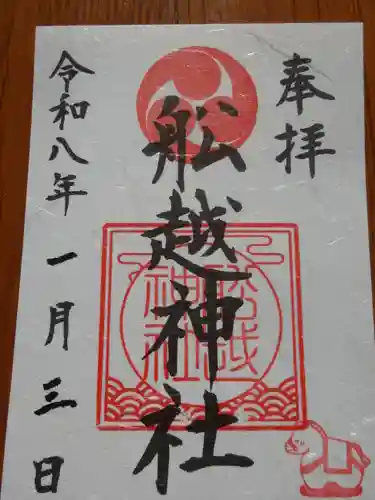 奉拝
舩越神社
令和八年一月三日